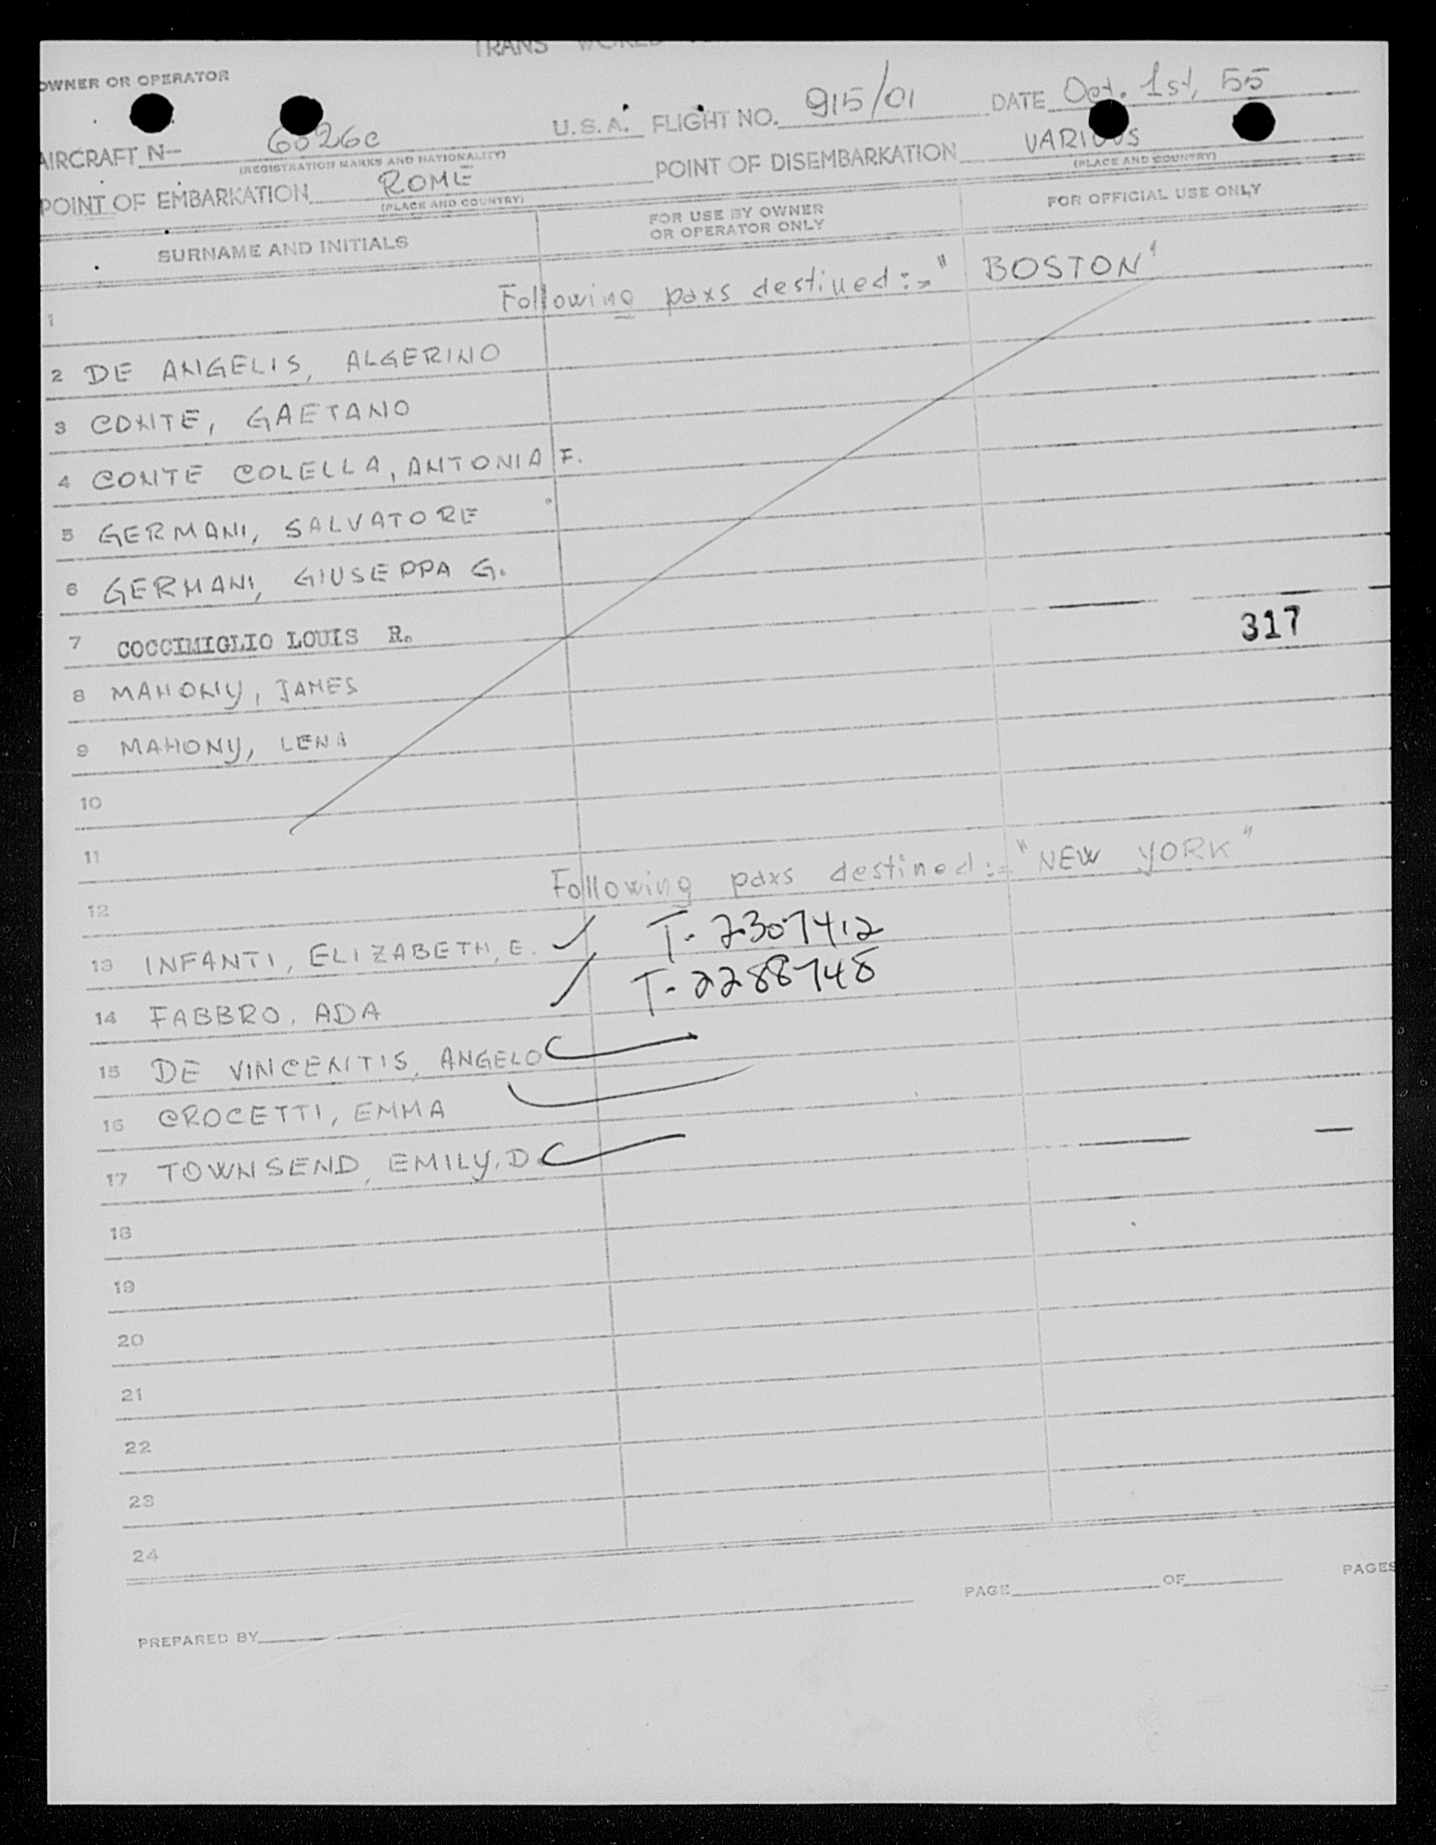 TRANS WORLD
OWNER OR OPERATOR
AIRCRAFT N- 6026C U.S.A. FLIGHT NO. 915/01 DATE Oct. 1st, 55
(REGISTRATION MARKS AND NATIONALITY)
POINT OF EMBARKATION ROME POINT OF DISEMBARKATION VARIOUS
(PLACE AND COUNTRY) (PLACE AND COUNTRY)
SURNAME AND INITIALS FOR USE BY OWNER OR OPERATOR ONLY FOR OFFICIAL USE ONLY
1 Following paxs destined:- "BOSTON"
2 DE ANGELIS, ALGERINO
3 CONTE, GAETANO
4 CONTE COLELLA, ANTONIA F.
5 GERMANI, SALVATORE
6 GERMANI, GIUSEPPA G.
7 COCCIMIGLIO LOUIS R. 317
8 MAHONY, JAMES
9 MAHONY, LENA
10
11
12 Following paxs destined:- "NEW YORK"
13 INFANTI, ELIZABETH, E. ✓ T-2307412
14 FABBRO, ADA ✓ T-2288748
15 DE VINCENTIS, ANGELO
16 CROCETTI, EMMA
17 TOWNSEND, EMILY. D
18
19
20
21
22
23
24
PREPARED BY PAGE OF PAGES